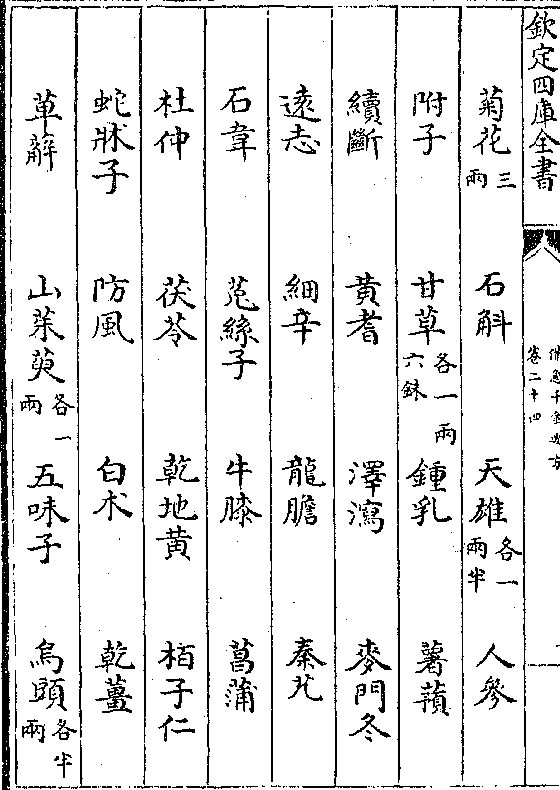 欽定四庫全書
備急千金要方
卷二十四
菊花三兩 石斛 天雄各一兩半 人參
附子 甘草各一兩六銖 鍾乳 薯蕷
續斷 黃耆 澤瀉 麥門冬
遠志 細辛 龍膽 秦艽
石韋 菟絲子 牛膝 菖蒲
杜仲 茯苓 乾地黃 栢子仁
蛇牀子 防風 白术 乾薑
萆薢 山茱萸各一兩 五味子 烏頭各半兩